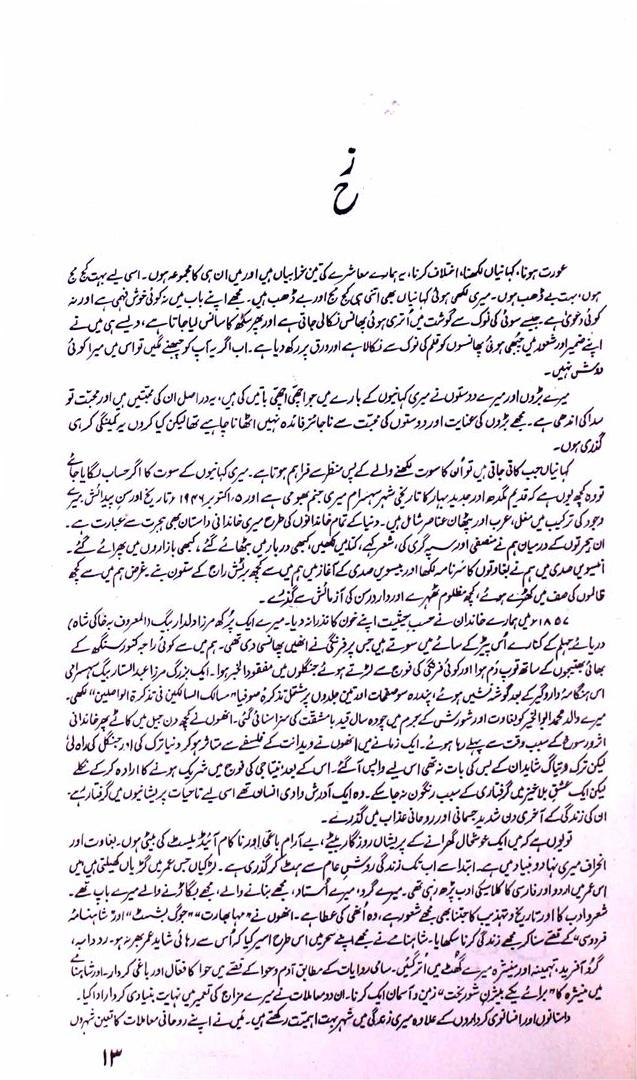 ز
ح
عورت ہونا، کہانیاں لکھنا، اختلاف کرنا، یہ ہمارے معاشرے کی تین خرابیاں ہیں اور میں ان ہی کا مجموعہ ہوں۔ اسی لیے بہت کج مج
ہوں، بہت بے ڈھب ہوں۔ میری لکھی ہوئی کہانیاں بھی اتنی ہی کج مج اور بے ڈھب ہیں۔ مجھے اپنے باب میں نہ کوئی خوش فہمی ہے اور نہ
کوئی دعویٰ ہے۔ جیسے سوئی کی نوک سے گوشت میں اُتری ہوئی پھانس نکالی جاتی ہے اور پھر سکھ کا سانس لیا جاتا ہے، ویسے ہی میں نے
اپنے ضمیر اور شعور میں چبھی ہوئی پھانسوں کو قلم کی نوک سے نکالا ہے اور ورق پر رکھ دیا ہے۔ اب اگر یہ آپ کو چبھنے لگیں تو اس میں میرا کوئی
دوش نہیں۔
میرے بڑوں اور میرے دوستوں نے میری کہانیوں کے بارے میں جو اچھی اچھی باتیں کی ہیں، یہ دراصل ان کی محبتیں ہیں اور محبت تو
سدا کی اندھی ہے۔ مجھے بڑوں کی عنایت اور دوستوں کی محبت سے ناجائز فائدہ نہیں اٹھانا چاہیے تھا لیکن کیا کروں یہ کمینگی کر ہی
گذری ہوں۔
کہانیاں جب کاتی جاتی ہیں تو اُن کا سوت لکھنے والے کے پس منظر سے فراہم ہوتا ہے۔ میری کہانیوں کے سوت کا اگر حساب لگایا جائے
تو وہ کچھ یوں ہے کہ قدیم مگدھ اور جدید بہار کا تاریخی شہر سہسرام میری جنم بھومی ہے اور ۵؍ اکتوبر ۱۹۴۶ء تاریخ اور سن پیدائش۔ میرے
وجود کی ترکیب میں مغل، عرب اور پٹھان عناصر شامل ہیں۔ دنیا کے تمام خاندانوں کی طرح میری خاندانی داستان بھی ہجرت سے عبارت ہے۔
ان ہجرتوں کے درمیان ہم نے منصفی اور سپہ گری کی، شعر کہے، کتابیں لکھیں، کبھی دربار میں بٹھائے گئے، کبھی بازاروں میں پھرائے گئے۔
اُنیسویں صدی میں ہم نے بغاوتوں کا سرنامہ لکھا اور بیسویں صدی کے آغاز میں ہم میں سے کچھ برٹش راج کے ستون بنے۔ غرض ہم میں سے کچھ
ظالموں کی صف میں کھڑے ہوئے، کچھ مظلوم ٹھہرے اور دار و رسن کی آزمائش سے گذرے۔
۱۸۵۷ء میں ہمارے خاندان نے حسب حیثیت اپنے خون کا نذرانہ دیا۔ میرے ایک پُرکھ مرزا دلدار بیگ (المعروف بہ خاکی شاہ)
دریائے جہلم کے کنارے اُس پیڑ کے سائے میں سوتے ہیں جس پر فرنگی نے انھیں پھانسی دی تھی۔ ہم میں سے کوئی راجہ کنور سنگھ کے
بھائی بھتیجوں کے ساتھ توپ دَم ہوا اور کوئی فرنگی کی فوج سے لڑتے ہوئے جنگلوں میں مفقود الخبر ہوا۔ ایک بزرگ مرزا عبدالستار بیگ سہسرامی
اس ہنگامۂ دار و گیر کے بعد گوشہ نشیں ہوئے، پندرہ سو صفحات اور تین جلدوں پر مشتمل تذکرۂ صوفیا ”مسالک السالکین فی تذکرۃ الواصلین“ لکھی۔
میرے والد محمد ابوالخیر کو بغاوت اور شورش کے جرم میں چودہ سال قید بامشقت کی سزا سنائی گئی۔ انھوں نے کچھ دن جیل میں کاٹے پھر خاندانی
اثر و رسوخ کے سبب وقت سے پہلے رہا ہوئے۔ ایک زمانے میں انھوں نے ویدانت کے فلسفے سے متاثر ہو کر دنیا ترک کی اور جنگل کی راہ لی
لیکن ترک و تیاگ شاید ان کے بس کی بات نہ تھی اس لیے واپس آ گئے۔ اس کے بعد نیتاجی کی فوج میں شریک ہونے کا ارادہ کر کے نکلے
لیکن ایک عشقِ بلاخیز میں گرفتاری کے سبب رنگون نہ جا سکے۔ وہ ایک آدرش وادی انسان تھے اسی لیے تاحیات پریشانیوں میں گرفتار رہے۔
ان کی زندگی کے آخری دن شدید جسمانی اور روحانی عذاب میں گذرے۔
تو یوں ہے کہ میں ایک خوشحال گھرانے کے پریشان روزگار بیٹے، بے آرام باغی اور ناکام آئیڈیلسٹ کی بیٹی ہوں۔ بغاوت اور
انحراف میری نہاد و بنیاد میں ہے۔ ابتدا سے اب تک زندگی روشِ عام سے ہٹ کر گذری ہے۔ لڑکیاں جس عمر میں گڑیاں کھیلتی ہیں میں
اس عمر میں اردو اور فارسی کا کلاسیکی ادب پڑھ رہی تھی۔ میرے گرو، میرے اُستاد، مجھے بنانے والے، مجھے بگاڑنے والے میرے باپ تھے۔
شعر و ادب کا اور تاریخ و تہذیب کا جتنا بھی مجھے شعور ہے، وہ اُنھی کی عطا ہے۔ انھوں نے ”مہابھارت“ ”جوگ بشسٹ“ اور ”شاہنامۂ
فردوسی“ کے قصّے سنا کر مجھے زندگی کرنا سکھایا۔ شاہنامے نے مجھے اپنے سحر میں اس طرح اسیر کیا کہ اُس سے رہائی شاید عمر بھر نہ ہو۔ رودابہ،
گرد آفرید، تہمینہ اور منیژہ میرے گھٹی میں اُتر گئیں۔ سامی روایات کے مطابق آدم و حوا کے قصّے میں حوا کا فعال اور باغی کردار۔ اور شاہنامے
میں منیژہ کا ”برائے یکے بیژنِ شور بخت“ زمین و آسمان ایک کرنا۔ ان دو معاملات نے میرے مزاج کی تعمیر میں نہایت بنیادی کردار ادا کیا۔
داستانوں اور افسانوی کرداروں کے علاوہ میری زندگی میں شہر بہت اہمیت رکھتے ہیں۔ میں نے اپنے روحانی معاملات کا تعین شہروں
۱۳